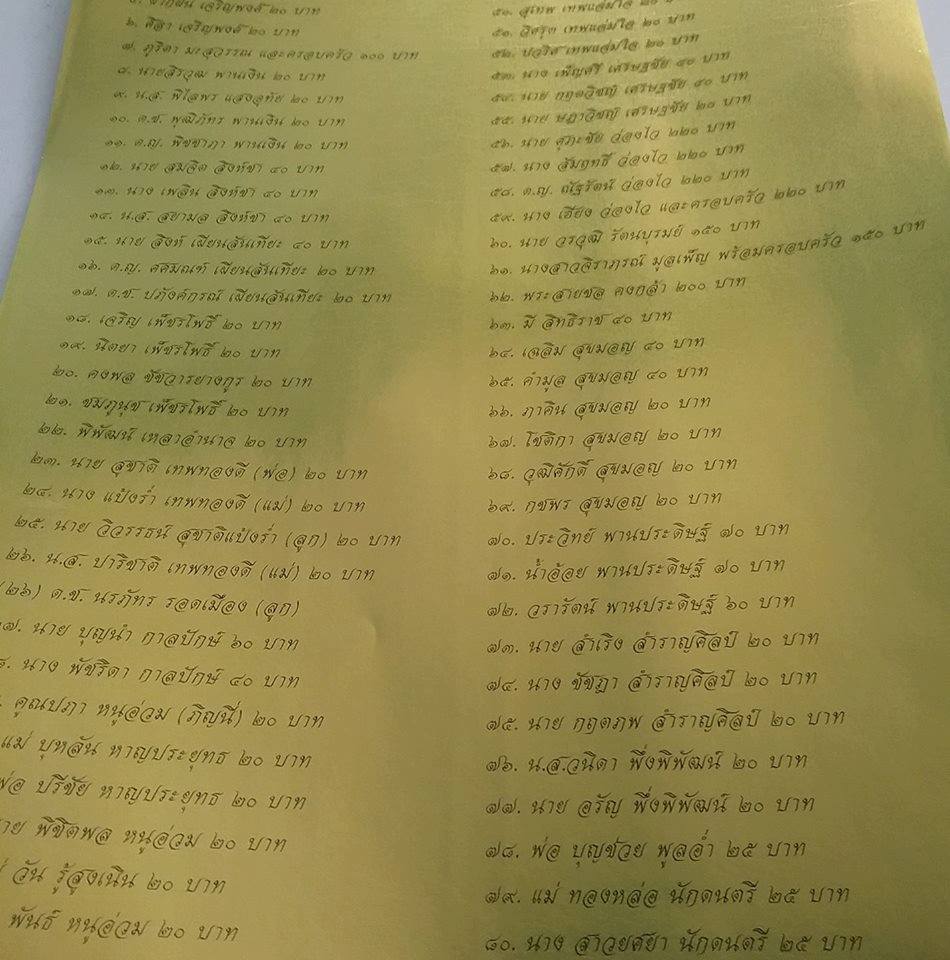 เจริญพงศ์ ๒๐ บาท
๖. ศิลา เจริญพงศ์ ๒๐ บาท
๗. ภูริดา มะสุวรรณ และครอบครัว ๑๐๐ บาท
๘. นายสิรวุฒ พานเงิน ๒๐ บาท
๙. น.ส. พิไลพร แสงอุทัย ๒๐ บาท
๑๐. ด.ช. พุฒิภัทร พานเงิน ๒๐ บาท
๑๑. ด.ญ. พิชชาภา พานเงิน ๒๐ บาท
๑๒. นาย สมจิต สิงห์ชา ๔๐ บาท
๑๓. นาง เพลิน สิงห์ชา ๔๐ บาท
๑๔. น.ส. สยามล สิงห์ชา ๔๐ บาท
๑๕. นาย สิงห์ เผียนสันเทียะ ๔๐ บาท
๑๖. ด.ญ. ศศิมณฑ์ เผียนสันเทียะ ๒๐ บาท
๑๗. ด.ช. ปภังค์กรณ์ เผียนสันเทียะ ๒๐ บาท
๑๘. เจริญ เพ็ชรโพธิ์ ๒๐ บาท
๑๙. นิตยา เพ็ชรโพธิ์ ๒๐ บาท
๒๐. คงพล ชัชวารยางกูร ๒๐ บาท
๒๑. ชมภูนุช เพ็ชรโพธิ์ ๒๐ บาท
๒๒. พิพัฒน์ เหลาอำนาจ ๒๐ บาท
๒๓. นาย สุชาติ เทพทองดี (พ่อ) ๒๐ บาท
๒๔. นาง แป้งร่ำ เทพทองดี (แม่) ๒๐ บาท
๒๕. นาย วิวรรธน์ สุชาติแป้งร่ำ (ลูก) ๒๐ บาท
๒๖. น.ส. ปาริชาติ เทพทองดี (แม่) ๒๐ บาท
(๒๖) ด.ช. นรภัทร รอดเมือง (ลูก)
๗. นาย บุญนำ กาลปักษ์ ๖๐ บาท
๘. นาง พัชริดา กาลปักษ์ ๔๐ บาท
. คูณปภา หนูอ่วม (ภิญนี่) ๒๐ บาท
แม่ บุหลัน หาญประยุทธ ๒๐ บาท
พ่อ ปรีชัย หาญประยุทธ ๒๐ บาท
าย พิชิตพล หนูอ่วม ๒๐ บาท
วัน รู้สูงเนิน ๒๐ บาท
พันธ์ หนูอ่วม ๒๐ บาท
๕๐. สุเทพ เทพแสมใจ ๒๐
๕๑. เทพแสมใจ ๒๐ บาท
๕๒. ปวริศ เทพแสมใจ ๒๐ บาท
๕๓. นาง เพ็ญศรี เศรษฐชัย ๔๐ บาท
๕๔. นาย กฤตวิชญ์ เศรษฐชัย ๔๐ บาท
๕๕. นาย ษฎาวิชญ์ เศรษฐชัย ๒๐ บาท
๕๖. นาย ศุภะชัย ว่องไว ๒๒๐ บาท
๕๗. นาง สัมฤทธิ์ ว่องไว ๒๒๐ บาท
๕๘. ด.ญ. ณัฐรัตน์ ว่องไว ๒๒๐ บาท
๕๙. นาง เฮียง ว่องไว และครอบครัว ๒๒๐ บาท
๖๐. นาย วรวุฒิ รัตนบุรมย์ ๑๕๐ บาท
๖๑. นางสาวจิราภรณ์ มูลเพ็ญ พร้อมครอบครัว ๑๕๐ บาท
๖๒. พระสายชล คงกล่ำ ๒๐๐ บาท
๖๓. มี สิทธิราช ๔๐ บาท
๖๔. เฉลิม สุขมอญ ๔๐ บาท
๖๕. คำมูล สุขมอญ ๔๐ บาท
๖๖. ภาคิน สุขมอญ ๒๐ บาท
๖๗. โชติกา สุขมอญ ๒๐ บาท
๖๘. วุฒิศักดิ์ สุขมอญ ๒๐ บาท
๖๙. กชพร สุขมอญ ๒๐ บาท
๗๐. ประวิทย์ พานประดิษฐ์ ๗๐ บาท
๗๑. น้ำอ้อย พานประดิษฐ์ ๗๐ บาท
๗๒. วรารัตน์ พานประดิษฐ์ ๖๐ บาท
๗๓. นาย สำเริง สำราญศิลป์ ๒๐ บาท
๗๔. นาง ชัชฎา สำราญศิลป์ ๒๐ บาท
๗๕. นาย กฤตภพ สำราญศิลป์ ๒๐ บาท
๗๖. น.ส.วนิดา พึ่งพิพัฒน์ ๒๐ บาท
๗๗. นาย อรัญ พึ่งพิพัฒน์ ๒๐ บาท
๗๘. พ่อ บุญช่วย พูลอ่ำ ๒๕ บาท
๗๙. แม่ ทองหล่อ นักดนตรี ๒๕ บาท
๘๐. นาง สาวยศยา นักดนตรี ๒๕ บาท